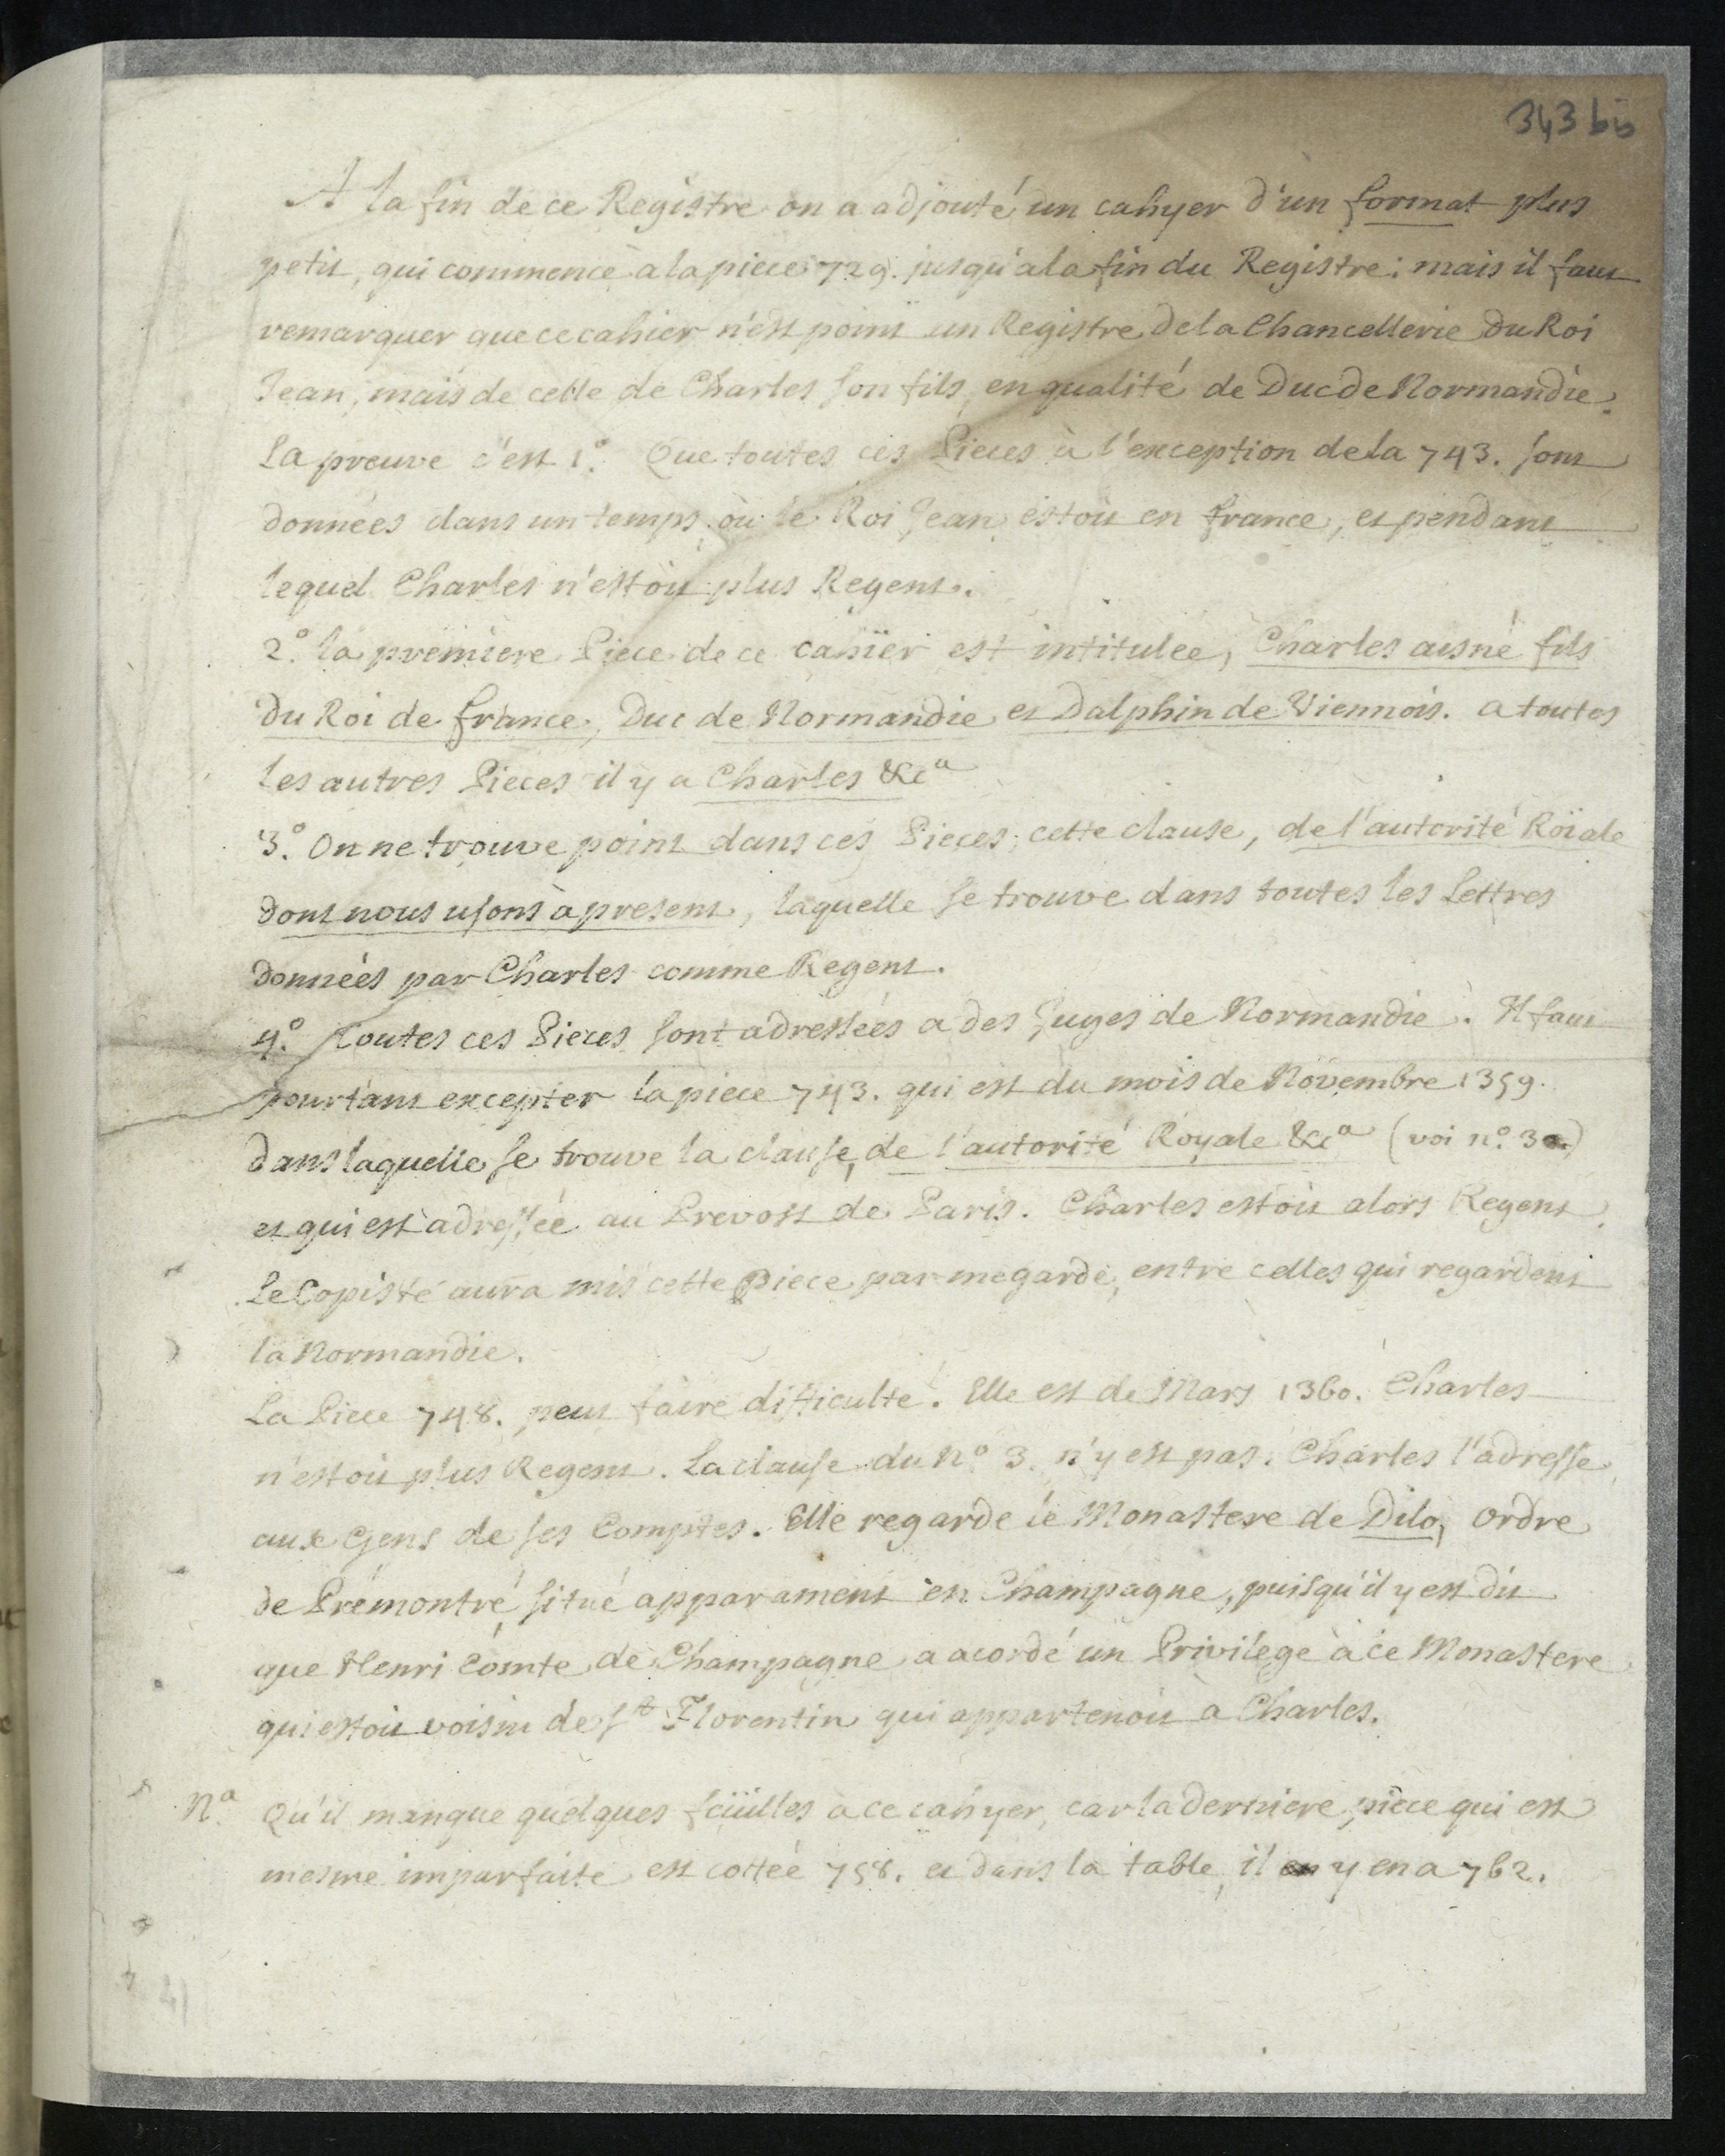 343 bis
A la fin de ce Registre on a adjouté un cahyer d'un format plus
petit, qui commence a la piece 729. jusqu'a la fin du Registre: mais il faut
remarquer que ce cahier n'est point un Registre de la Chancellerie du Roi
Jean, mais de celle de Charles son fils, en qualité de Duc de Normandie.
La preuve c'est 1.° Que toutes ces Pieces à l'exception de la 743. sont
données dans un temps où le Roi Jean estoit en france, et pendant
lequel Charles n'estoit plus Regent.
2.° la premiere Piece de ce cahier est intitulée, Charles aisné fils
du Roi de france, Duc de Normandie et Dalphin de Viennois. a toutes
les autres Pieces il y a Charles &c.a
3.° On ne trouve point dans ces Pieces, cette clause, de l'autorité Roïale
dont nous usons à present, laquelle se trouve dans toutes les Lettres
données par Charles comme Regent.
4.° Toutes ces Pieces sont adressées a des Juges de Normandie. Il faut
pourtant excepter la piece 743. qui est du mois de Novembre 1359.
dans laquelle se trouve la clause, de l'autorité Royale &c.a (voi n.° 3.)
et qui est adressée au Prevost de Paris. Charles estoit alors Regent.
Le Copiste aura mis cette Piece par megarde, entre celles qui regardent
la Normandie.
La Piece 748. peut faire difficulté. Elle est de Mars 1360. Charles
n'estoit plus Regent. La clause du N.° 3. n'y est pas. Charles l'adresse
aux Gens de ses Comptes. Elle regarde le Monastere de Dilo, Ordre
de Prémontré, situé apparament en Champagne, puisqu'il y est dit
que Henri Comte de Champagne a acordé un Privilege à ce Monastere
qui estoit voisin de S.t Florentin qui appartenoit a Charles.
N.a Qu'il manque quelques feüilles a ce cahyer, car la derniere piece qui est
mesme imparfaite est cottée 758. et dans la table, il y en a 762.